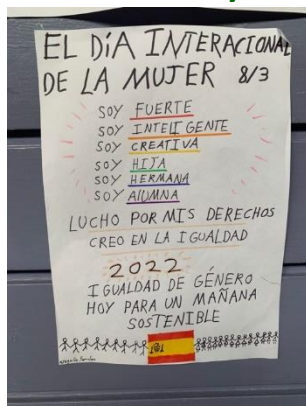 EL DÍA INTERACIONAL
DE LA MUJER 8/3
SOY FUERTE
SOY INTELIGENTE
SOY CREATIVA
SOY HIJA
SOY HERMANA
SOY ALUMNA
LUCHO POR MIS DERECHOS
CREO EN LA IGUALDAD
2022
IGUALDAD DE GÉNERO
HOY PARA UN MAÑANA
SOSTENIBLE